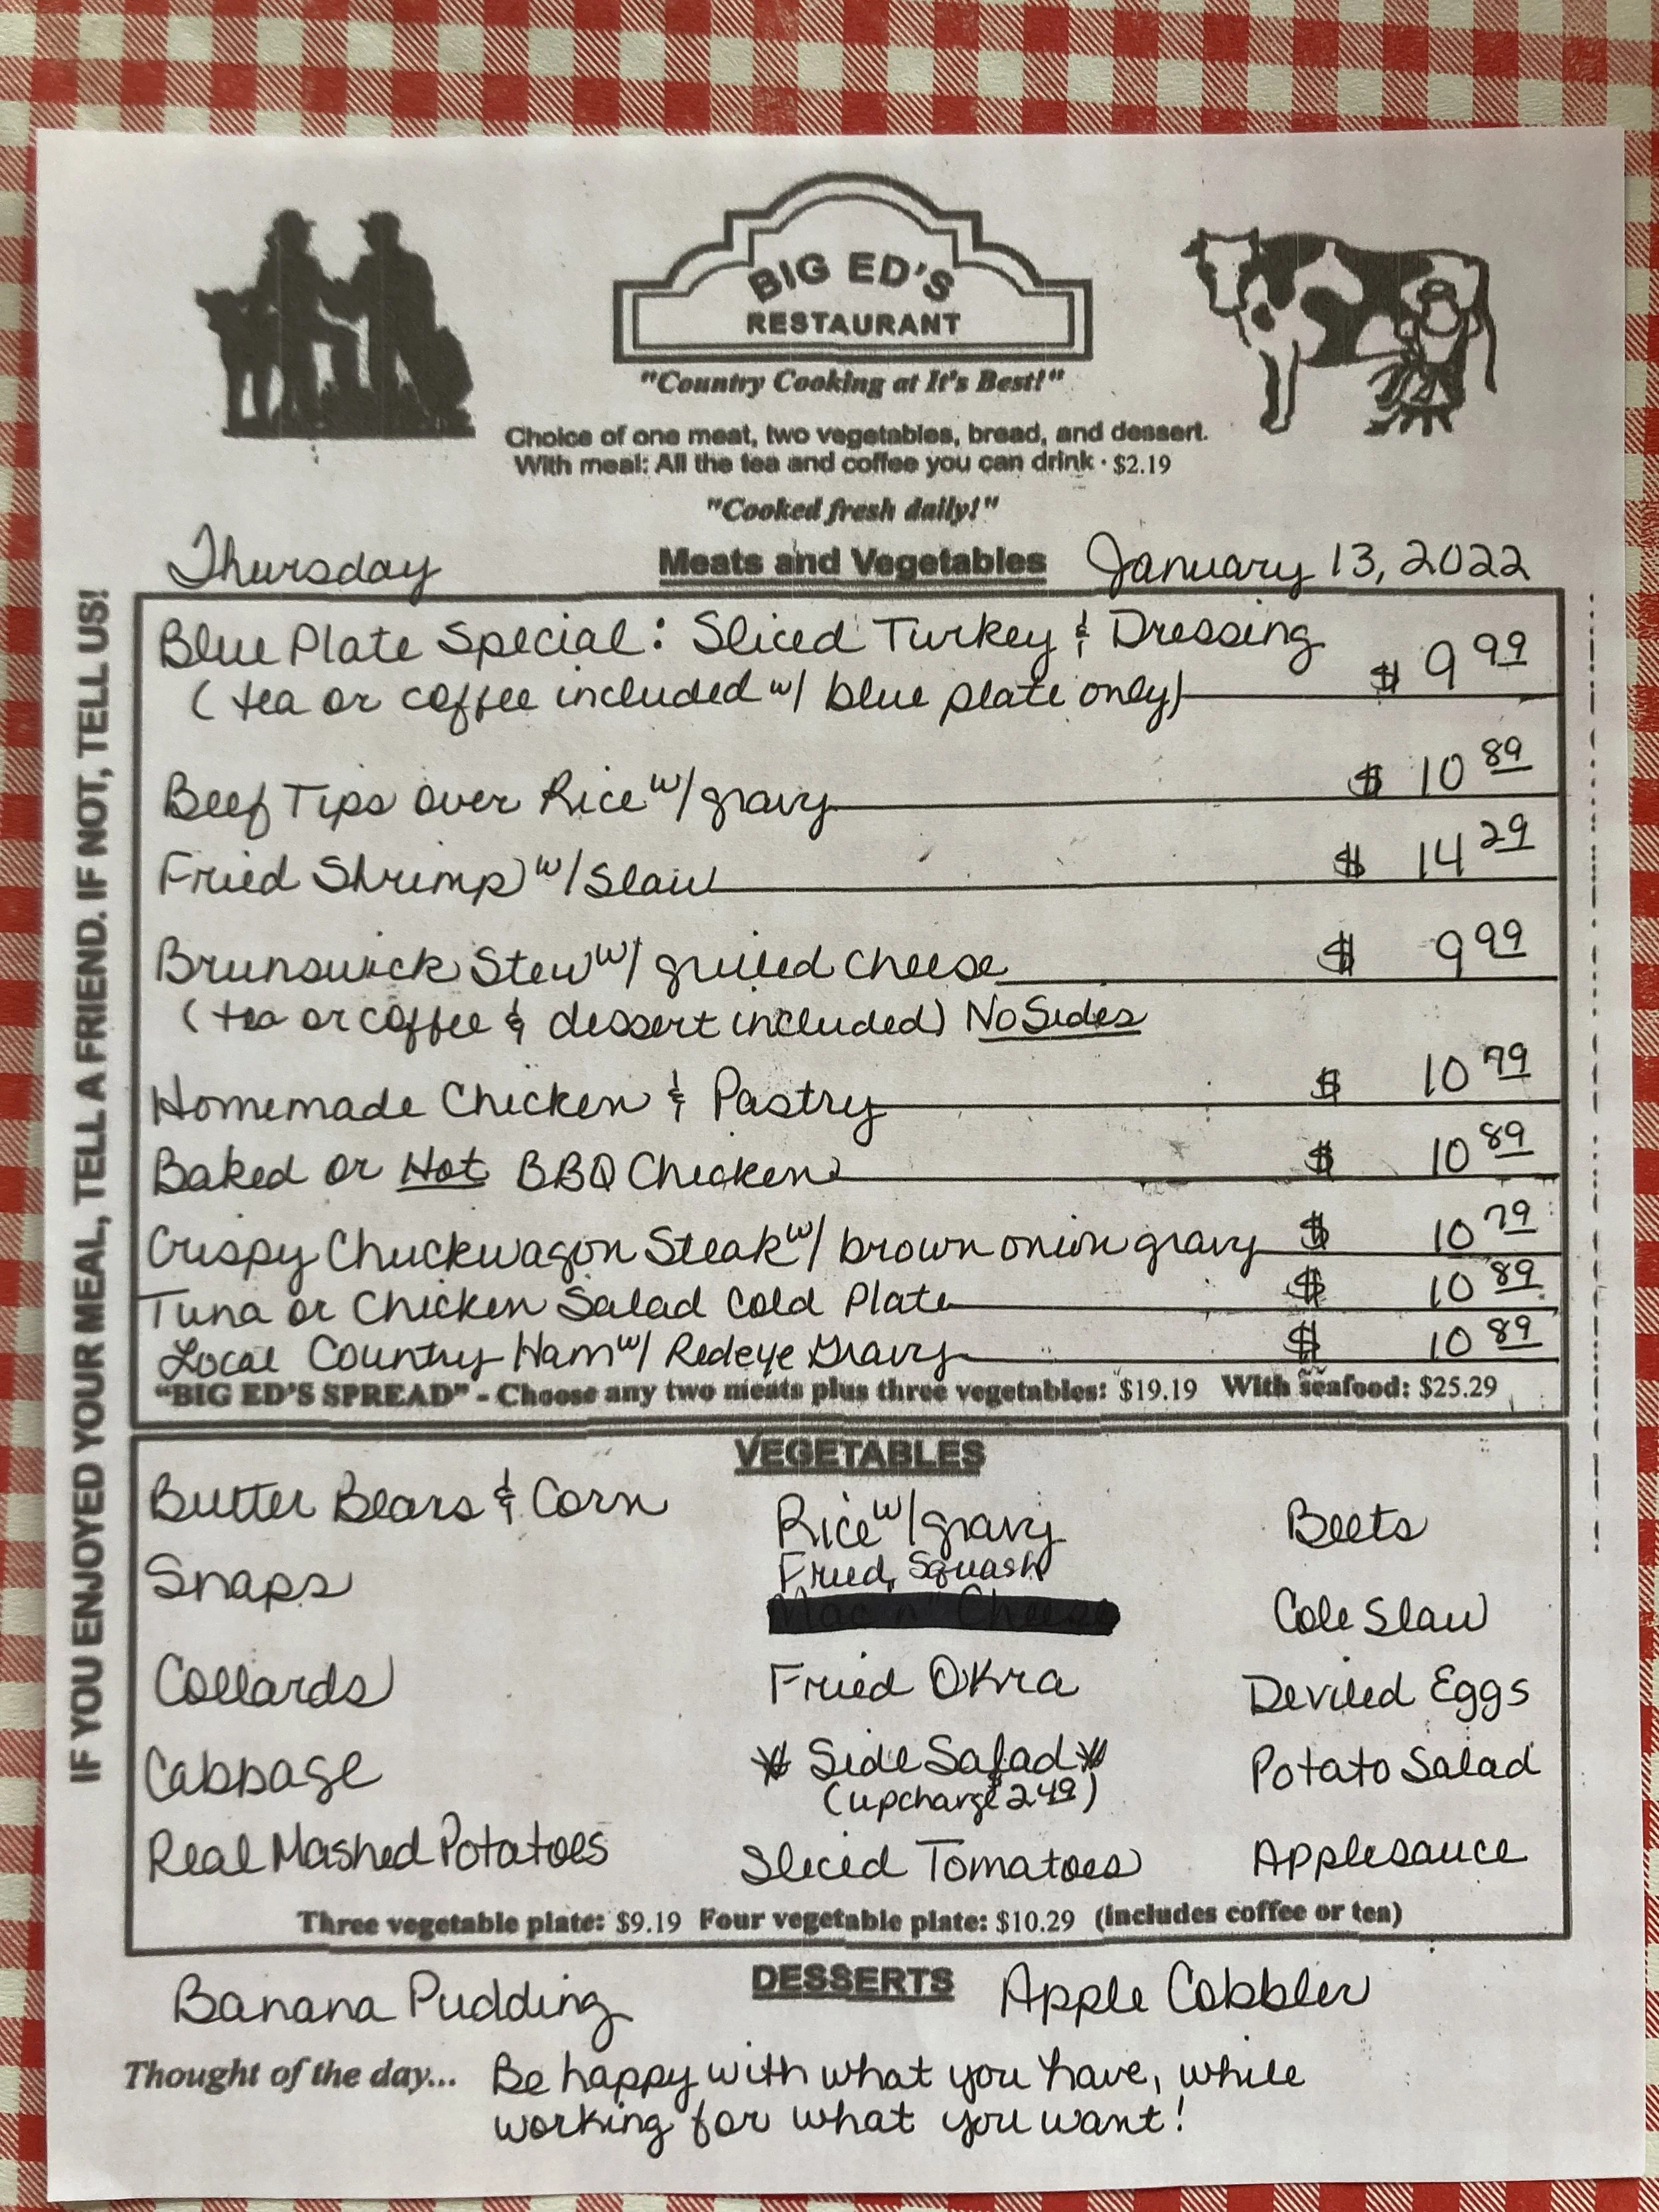 BIG ED'S
RESTAURANT
"Country Cooking at It's Best!"
Choice of one meat, two vegetables, bread, and dessert.
With meal: All the tea and coffee you can drink · $2.19
"Cooked fresh daily!"
Thursday Meats and Vegetables January 13, 2022
IF YOU ENJOYED YOUR MEAL, TELL A FRIEND. IF NOT, TELL US!
Blue Plate Special: Sliced Turkey & Dressing $ 9 99
(tea or coffee included w/ blue plate only)
Beef Tips over Rice w/ gravy $ 10 89
Fried Shrimp w/ Slaw $ 14 29
Brunswick Stew w/ grilled cheese $ 9 99
(tea or coffee & dessert included) No Sides
Homemade Chicken & Pastry $ 10 79
Baked or Hot BBQ Chicken $ 10 89
Crispy Chuckwagon Steak w/ brown onion gravy $ 10 79
Tuna or Chicken Salad Cold Plate $ 10 89
Local Country Ham w/ Redeye Gravy $ 10 89
"BIG ED'S SPREAD" - Choose any two meats plus three vegetables: $19.19 With seafood: $25.29
VEGETABLES
Butter Beans & Corn Rice w/ gravy Beets
Snaps Fried Squash
Mac n' Cheese Cole Slaw
Collards Fried Okra Deviled Eggs
Cabbage * Side Salad * Potato Salad
(upcharge $2 49)
Real Mashed Potatoes Sliced Tomatoes Applesauce
Three vegetable plate: $9.19 Four vegetable plate: $10.29 (includes coffee or tea)
Banana Pudding DESSERTS Apple Cobbler
Thought of the day... Be happy with what you have, while
working for what you want!